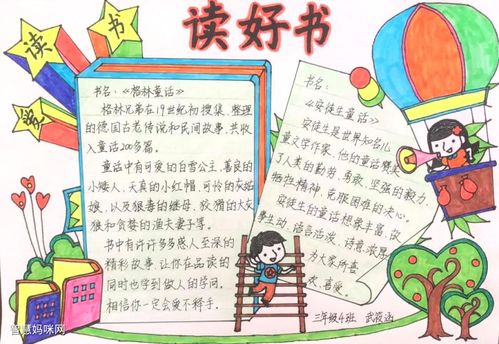 读好书
读
书
爱
书名:《格林童话》
格林兄弟在19世纪初搜集、整理
的德国古老传说和民间故事,共收
入童话200多篇。
童话中有可爱的白雪公主,善良的
小矮人,天真的小红帽,可怜的灰姑
娘,以及狠毒的继母,狡猾的大灰
狼和贪婪的渔夫妻子等。
书中有许许多多感人至深的
精彩故事,让你在品读的
同时也学到做人的学问,
相信你一定会爱不释手。
书名:
《安徒生童话》
安徒生是世界知名儿
童文学作家,他的童话赞美
了人类的勤劳、勇敢、坚强的毅力、
牺牲精神,克服困难的决心。
安徒生的童话想象丰富,故
事生动、语言活泼、诗意浓厚,
为大家所喜
欢、喜爱。
三年级4班 武
智慧妈咪网